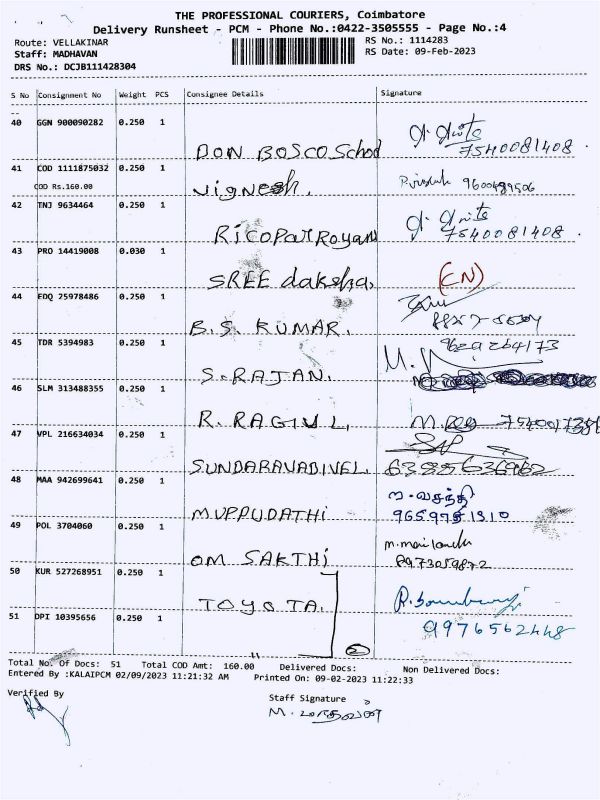 THE PROFESSIONAL COURIERS, Coimbatore
Delivery Runsheet - PCM - Phone No.:0422-3505555 - Page No.:4
Route: VELLAKINAR RS No.: 1114283
Staff: MADHAVAN RS Date: 09-Feb-2023
DRS No.: DCJB111428304
S No Consignment No Weight PCS Consignee Details Signature
40 GGN 900090282 0.250 1
DON BOSCO School 7540081408
41 COD 1111875032 0.250 1
COD Rs.160.00 Vignesh. 9600489506
42 TNJ 9634464 0.250 1
Ricopar Royam 7540081408
43 PRO 14419008 0.030 1
SREE daksha, (CN)
44 EDQ 25978486 0.250 1
B.S. KUMAR.
45 TDR 5394983 0.250 1
S.RAJAN.
46 SLM 313488355 0.250 1
R. RAGIUL,
47 VPL 216634034 0.250 1
SUNDARAVADIVEL
48 MAA 942699641 0.250 1 ம.வசந்தி
MUPPUDATHI
49 POL 3704060 0.250 1
OM SAKTHI 8973059872
50 KUR 527268951 0.250 1
TOYOTA.
51 DPI 10395656 0.250 1 9976562448
2
Total No. Of Docs: 51 Total COD Amt: 160.00 Delivered Docs: Non Delivered Docs:
Entered By :KALAIPCM 02/09/2023 11:21:32 AM Printed On: 09-02-2023 11:22:33
Verified By Staff Signature
M. மாதவன்